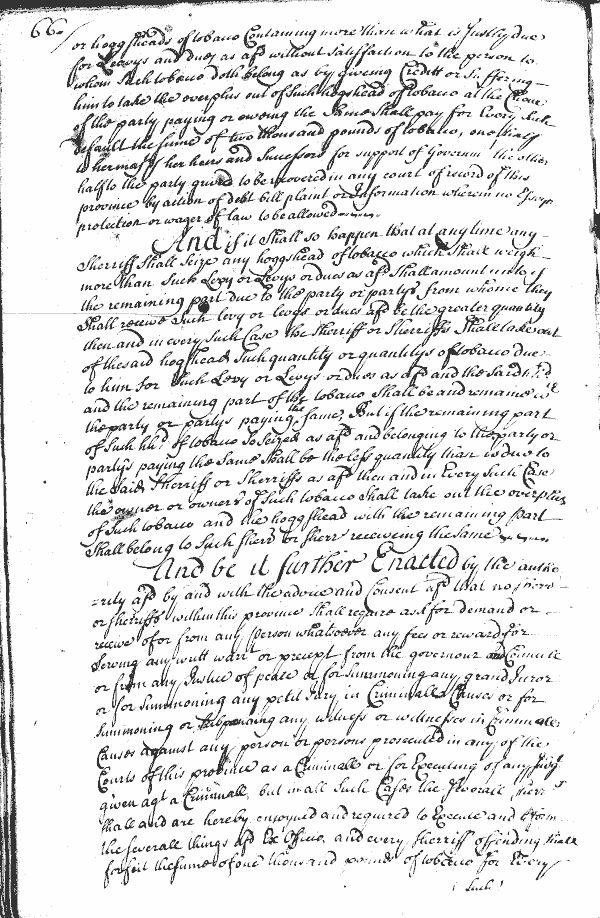 66
or hoggsheads of tobacco Containing more then what is Justly due
for Leavys and dues as afd without Satisfaction to the person to
whom Such tobacco doth belong as by giveing Creditt or Suffering
him to take the overplus out of Such hogshead of tobacco at the
of the party paying or oweing the Same Shall pay for Every Such
default the Sume of two thousand pounds of tobacco, one half
to her majty her heirs and Successors for support of Governmt the other
half to the party grieved to be recovered in any court of record of this
province by action of debt bill plaint or Information wherein no Essoyn
protection or wager of law to be allowed
And if it Shall so happen that at any time any
Sherriff Shall Seize any hoggshead of tobacco which Shall weigh
more than Such Levy or Levys or dues as afd Shall amount unto if
the remaining part due to the party or partys from whome they
Shall receive Such levy or levys or dues afd be the greater quantity
then and in every Such Case the Sherriff or Sherriffs Shall take out
of the said hogshead Such quantity or quantitys of tobacco due
to him for Such Levy or Levys or dues as afd and the said hhd
and the remaining part of the tobacco Shall be and remaine wth
the party or partys paying the Same, But if the remaining part
of Such hhd of tobacco So Seized as afd and belonging to the party or
partys paying the Same Shall be the less quantity than is due to
the Said Sherriff or Sherriffs as afd then and in Every Such Case
the owner or owners of Such tobacco Shall take out the overplus
of Such tobacco and the hoggshead with the remaining part
Shall belong to Such Sherr or Sherrs receiveing the Same
And be it further Enacted by the autho
=rity afd by and with the advice and Consent afd that no
or Sherriffs within this province Shall require ask for demand or
receive of or from any person whatsoever any fees or reward for
Serving any writt warrt or precept from the governour Councill
or from any Justice of peace or for Summoning any grand Juror
or for Summoning any petit Jury in Criminall Causes or for
Summoning or Subpenaing any witness or witnesses in Criminall
Causes against any person or persons prosecuted in any of the
Courts of this province as a Criminall or for Executing of any Judgt
given agt a Criminall, but in all Such Cases the Severall
Shall and are hereby enjoyned and required to Execute and
the severall things afd Ex Officio, and every Sherriff offending Shall
forfeit the Sume of one thousand pounds of tobacco for Every
Such